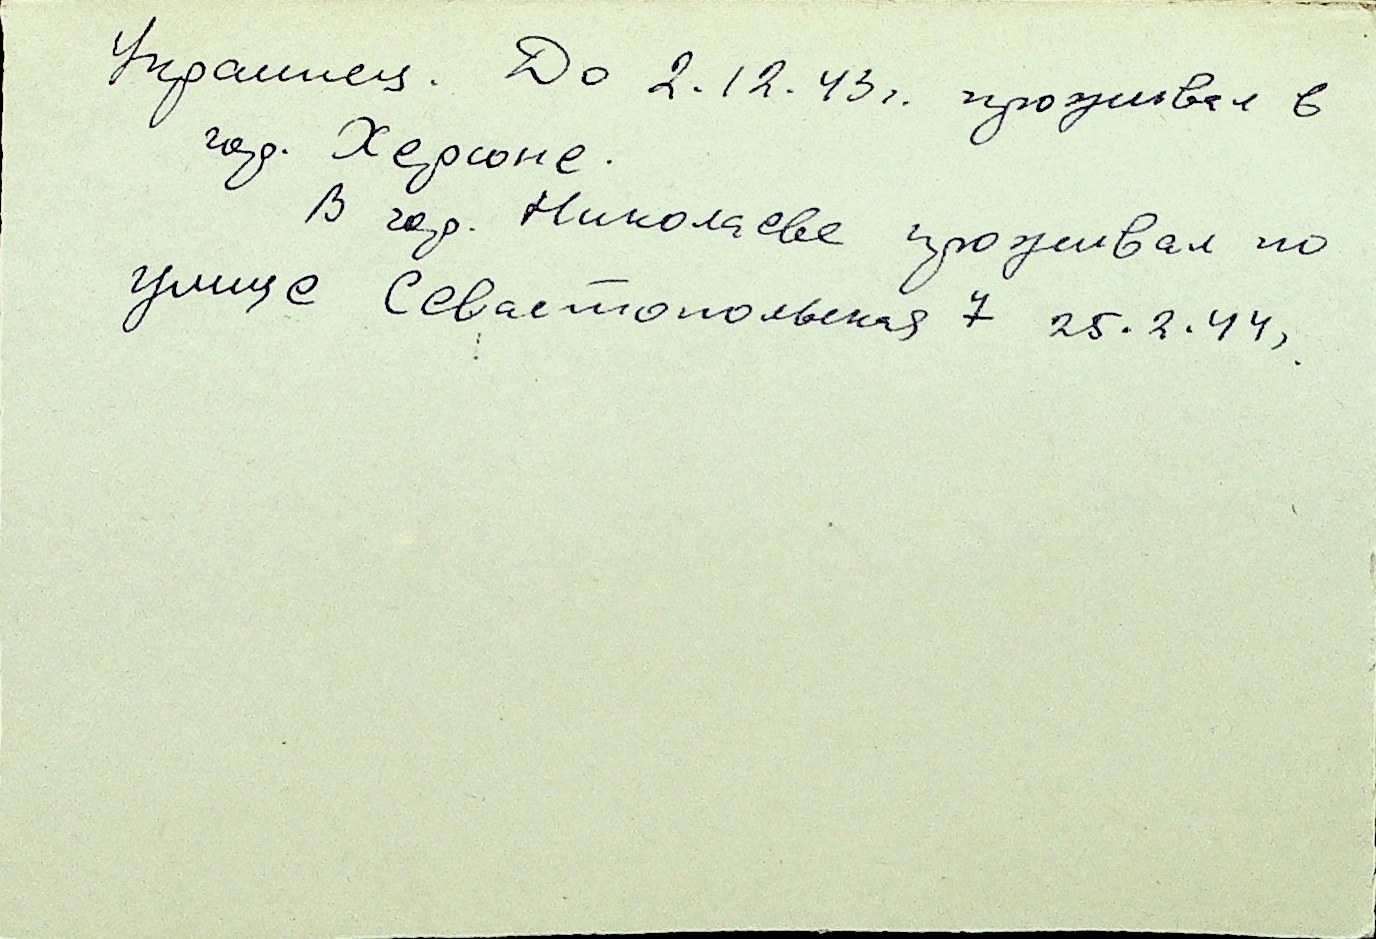 Украинец. До 2.12.43г. проживал в
гор. Херсоне.
В гор. Николаеве проживал по
улице Севастопольская 7 25.2.44г.